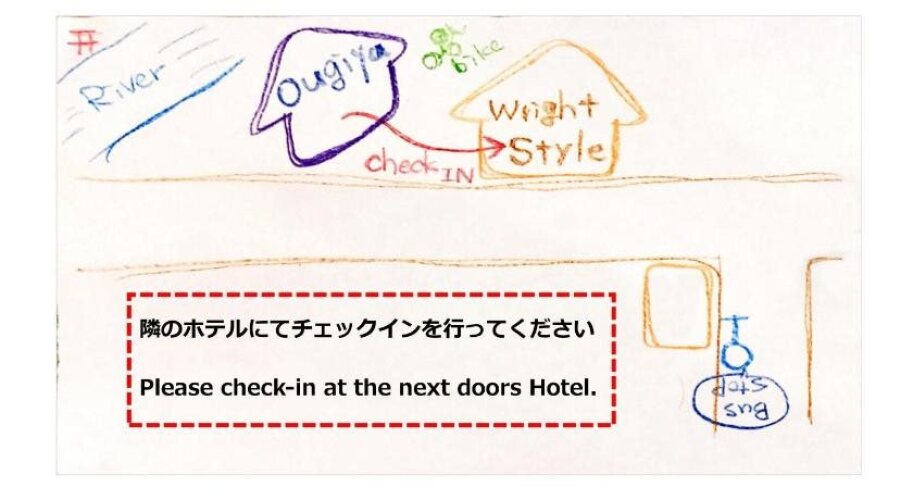 River
Ougiya
bike
Wright
Style
check IN
隣のホテルにてチェックインを行ってください
Please check-in at the next doors Hotel.
Bus
Stop